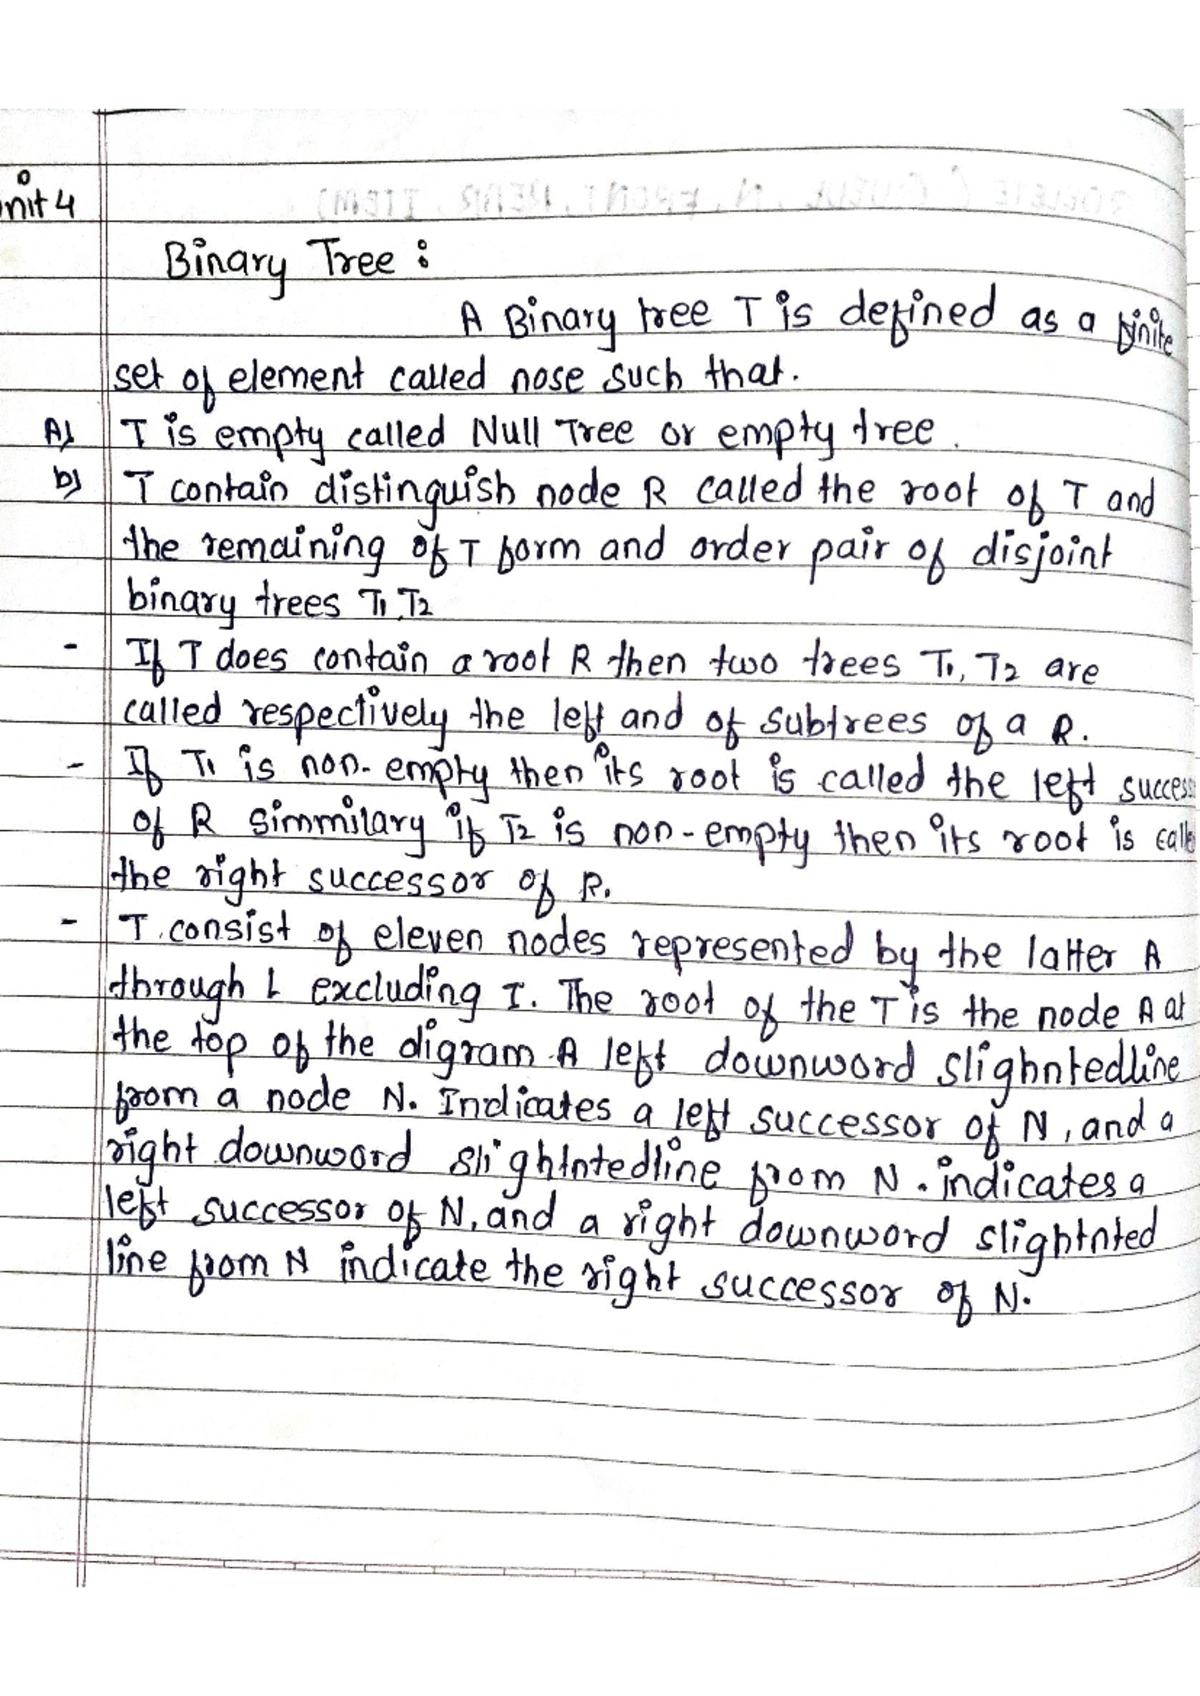 unit 4
Binary Tree :
A Binary tree T is defined as a finite
set of element called nose such that.
A) T is empty called Null Tree or empty tree.
b) T contain distinguish node R called the root of T and
the remaining of T form and order pair of disjoint
binary trees T1, T2
- If T does contain a root R then two trees T1, T2 are
called respectively the left and of subtrees of a R.
- If T1 is non-empty then its root is called the left success
of R simmilary if T2 is non-empty then its root is calle
the right successor of R.
- T. consist of eleven nodes represented by the latter A
through L excluding I. The root of the T is the node A at
the top of the digram. A left downword slighntedline
from a node N. Indicates a left successor of N, and a
right downword slightntedline from N. indicates a
left successor of N, and a right downword slightnted
line from N indicate the right successor of N.